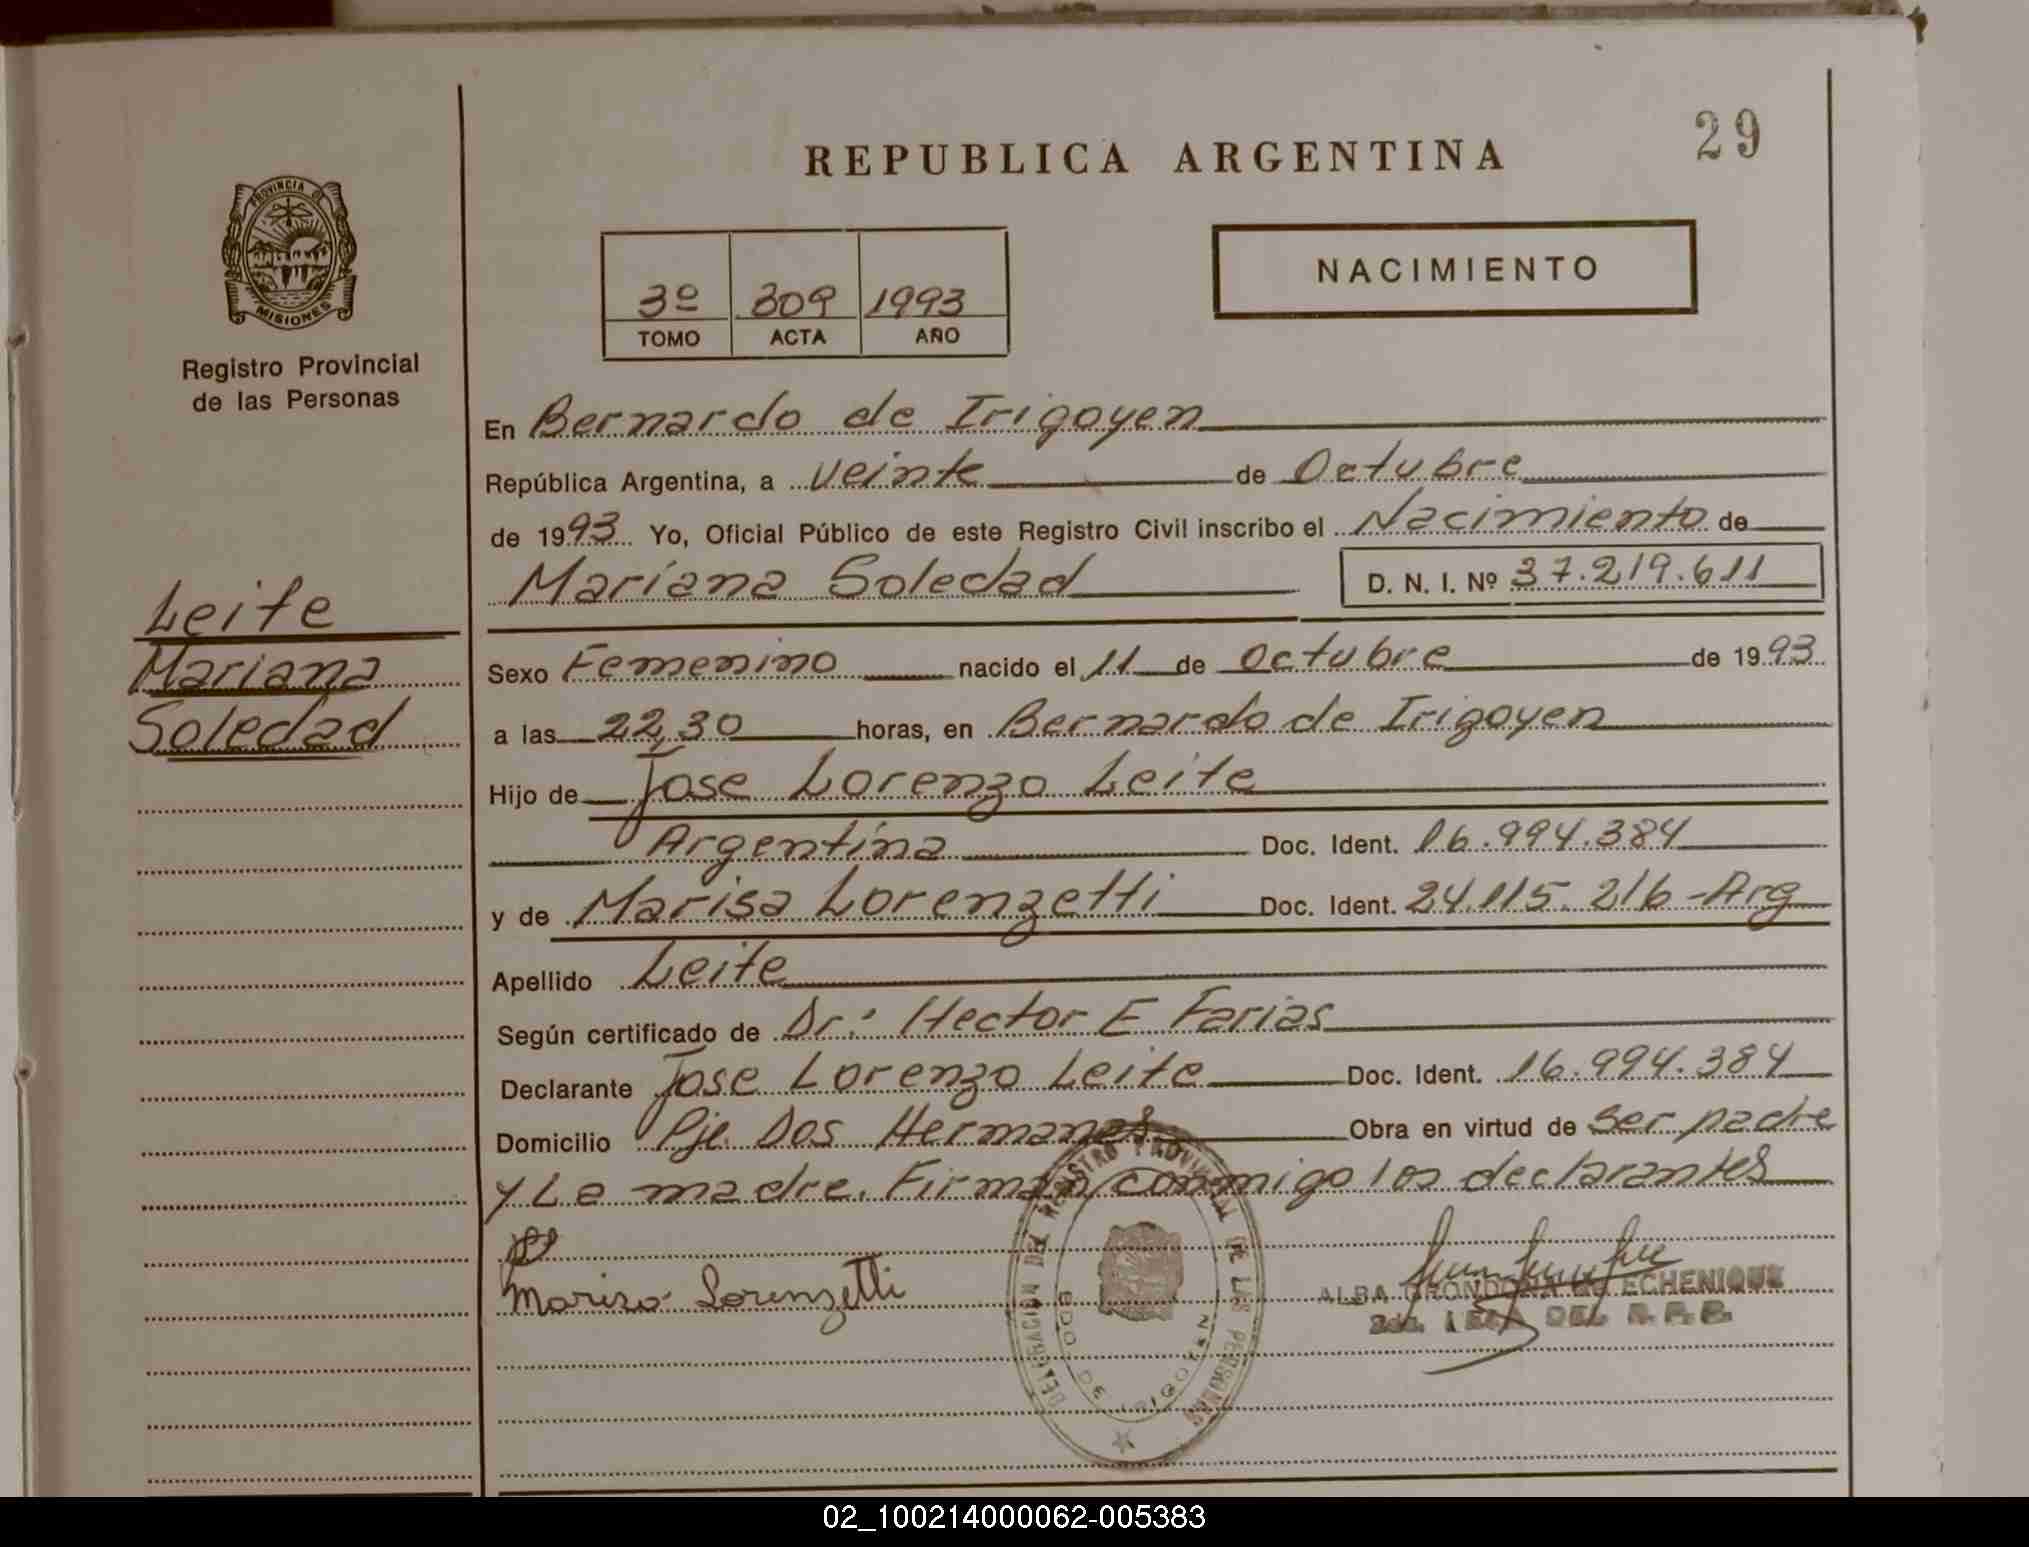 29
REPUBLICA ARGENTINA
PROVINCIA DE
MISIONES
Registro Provincial
de las Personas
3º 309 1993
TOMO ACTA AÑO
NACIMIENTO
En Bernardo de Irigoyen
República Argentina, a veinte de Octubre
de 1993 Yo, Oficial Público de este Registro Civil inscribo el Nacimiento de
Mariana Soledad D. N. I. Nº 37.219.611
Leite
Mariana
Soledad
Sexo Femenino nacido el 11 de Octubre de 1993
a las 22,30 horas, en Bernardo de Irigoyen
Hijo de Jose Lorenzo Leite
Argentina Doc. Ident. 16.994.384
y de Marisa Lorenzetti Doc. Ident. 24.115.216 - Arg
Apellido Leite
Según certificado de Dr: Hector E Farias
Declarante Jose Lorenzo Leite Doc. Ident. 16.994.384
Domicilio Pje. Dos Hermanas Obra en virtud de ser padre
y La madre. Firman conmigo los declarantes
Marisa Lorenzetti
ALBA GRONDONA DE ECHENIQUE
DEL R.P.P.
DELEGACION DEL REGISTRO PROVINCIAL DE LAS PERSONAS
BDO DE IRIGOYEN
02_100214000062-005383